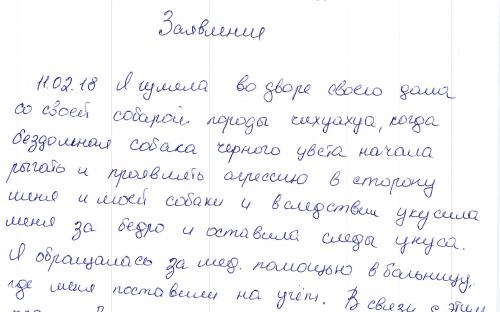 Заявление
11.02.18 Я гуляла во дворе своего дома
со своей собакой породы чихуахуа, когда
бездомная собака черного цвета начала
рычать и проявлять агрессию в сторону
меня и моей собаки и вследствии укусила
меня за бедро и оставила следы укуса.
Я обращалась за мед. помощью в больницу,
где меня поставили на учёт. В связи с этим